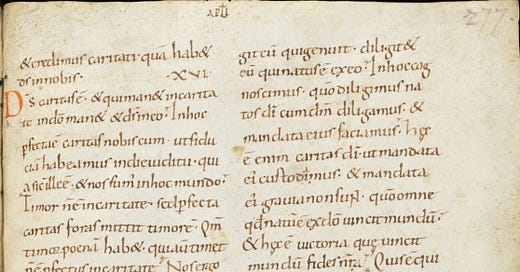 APLI
277
& credimus caritati · quā hab&
d̄s in nobis · ·XVI·
D̄s caritas ē · & qui man& in carita
te in dō man& & d̄s in eo · In hoc
pfecta ē caritas nobiscum · ut fidu
ciā habeamus in die iudicii · qui
a sic ille ē · & nos sum̄ in hoc mundo ·
Timor nē in caritate · sed pfecta
caritas foras mittit timorē · Qm̄
timor poenā hab& · qui aū tim&
nē pfectus in caritate · Nos ergo
git eū qui genuit · diligit &
eū qui natus ē ex eo · In hoc cog
noscimus · quō diligimus na
tos dī cum dm̄ diligamus · &
mandata eius faciamus · hęc
ē enim caritas dī · ut mandata
ei' custodimus · & mandata
ei' gravia non sun̄ · quō omne
qd̄ natū ē ex dō vincit mundū ·
& hęc ē victoria que vincit
mundum fides nr̄a · Quis e qui